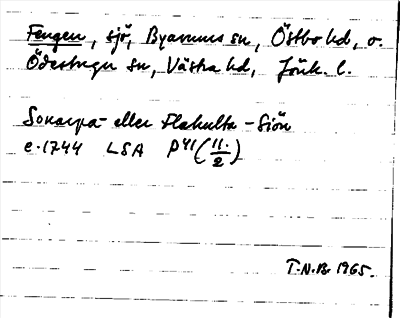 Fengen, sjö, Byarums sn, Östbo hd, o.
Ödestugu sn, Västra hd, Jönk. l.
Sonarpa- eller Flahulta-Siön
c. 1744 LSA P41 (11./2)
T.N.B. 1965.